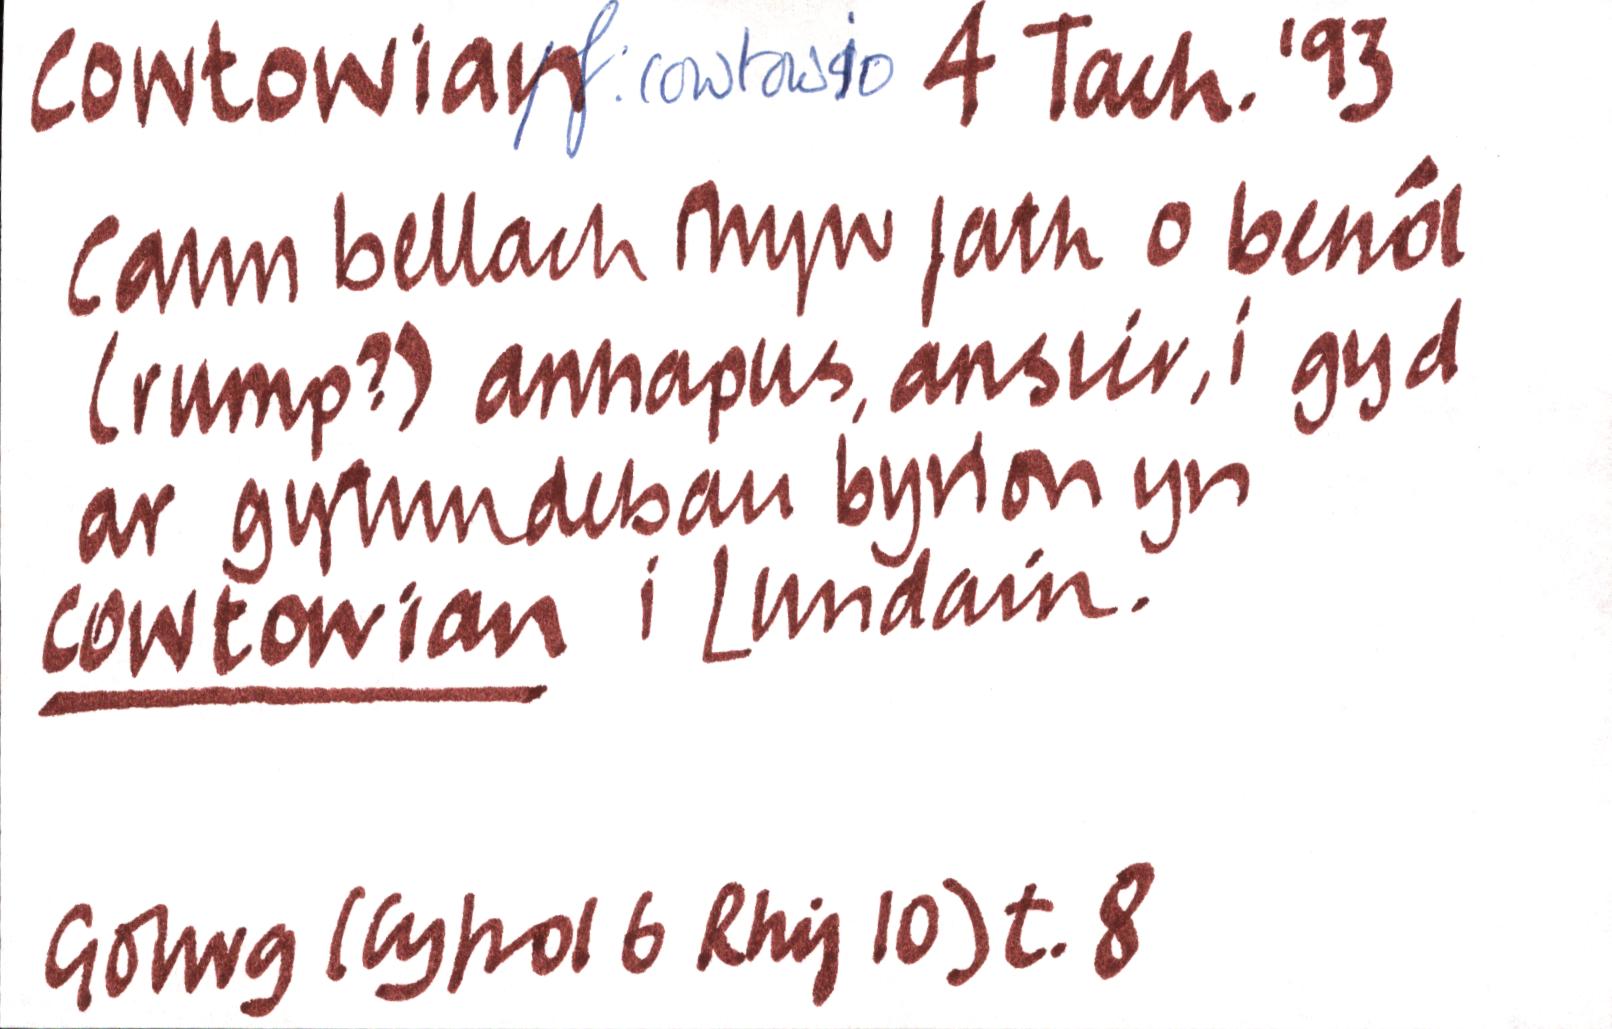 cowtowian /f: cowtowio 4 Tach. '93
Cawn bellach rhyw fath o benôl
(rump?) annhapus, ansicr, i gyd
ar gytundebau byrion yn
cowtowian i Lundain.
Golwg (Cyfrol 6 Rhif 10) t. 8